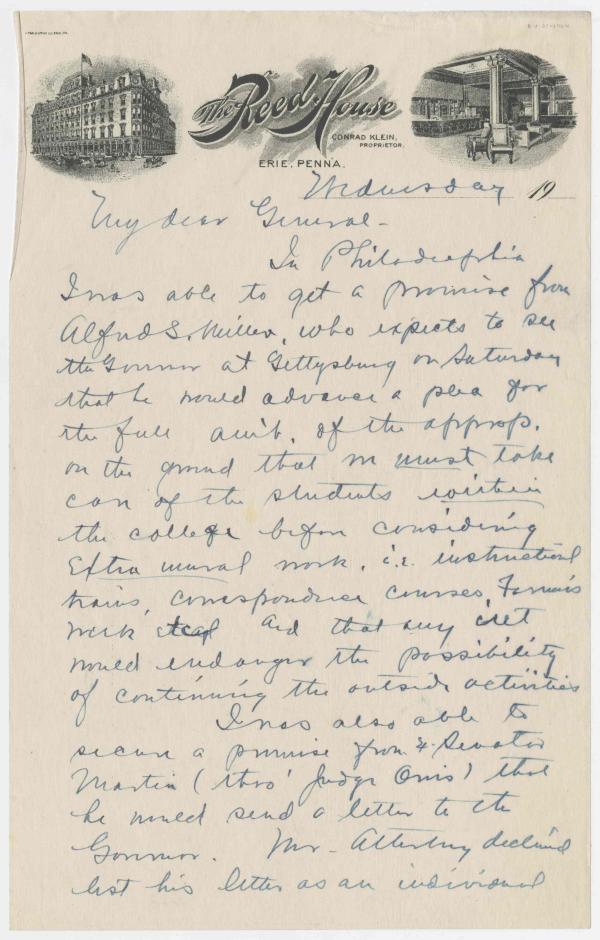 The Reed House
CONRAD KLEIN,
PROPRIETOR.
ERIE, PENNA.
Wednesday 19
My dear General -
In Philadelphia
I was able to get a promise from
Alfred S. Miller, who expects to see
the Governor at Gettysburg on Saturday
that he would advance a plea for
the full amt. of the approp.
on the ground that we must take
care of the students within
the college before considering
Extra mural work, i.e. instructional
trains, correspondence courses, Farmers
week etc. And that any cut
would endanger the possibility
of continuing the outside activities
I was also able to
secure a promise from Senator
Martin (thro' Judge Orvis) that
he would send a letter to the
Governor. Mr. Atterbury declined
lest his letter as an individual